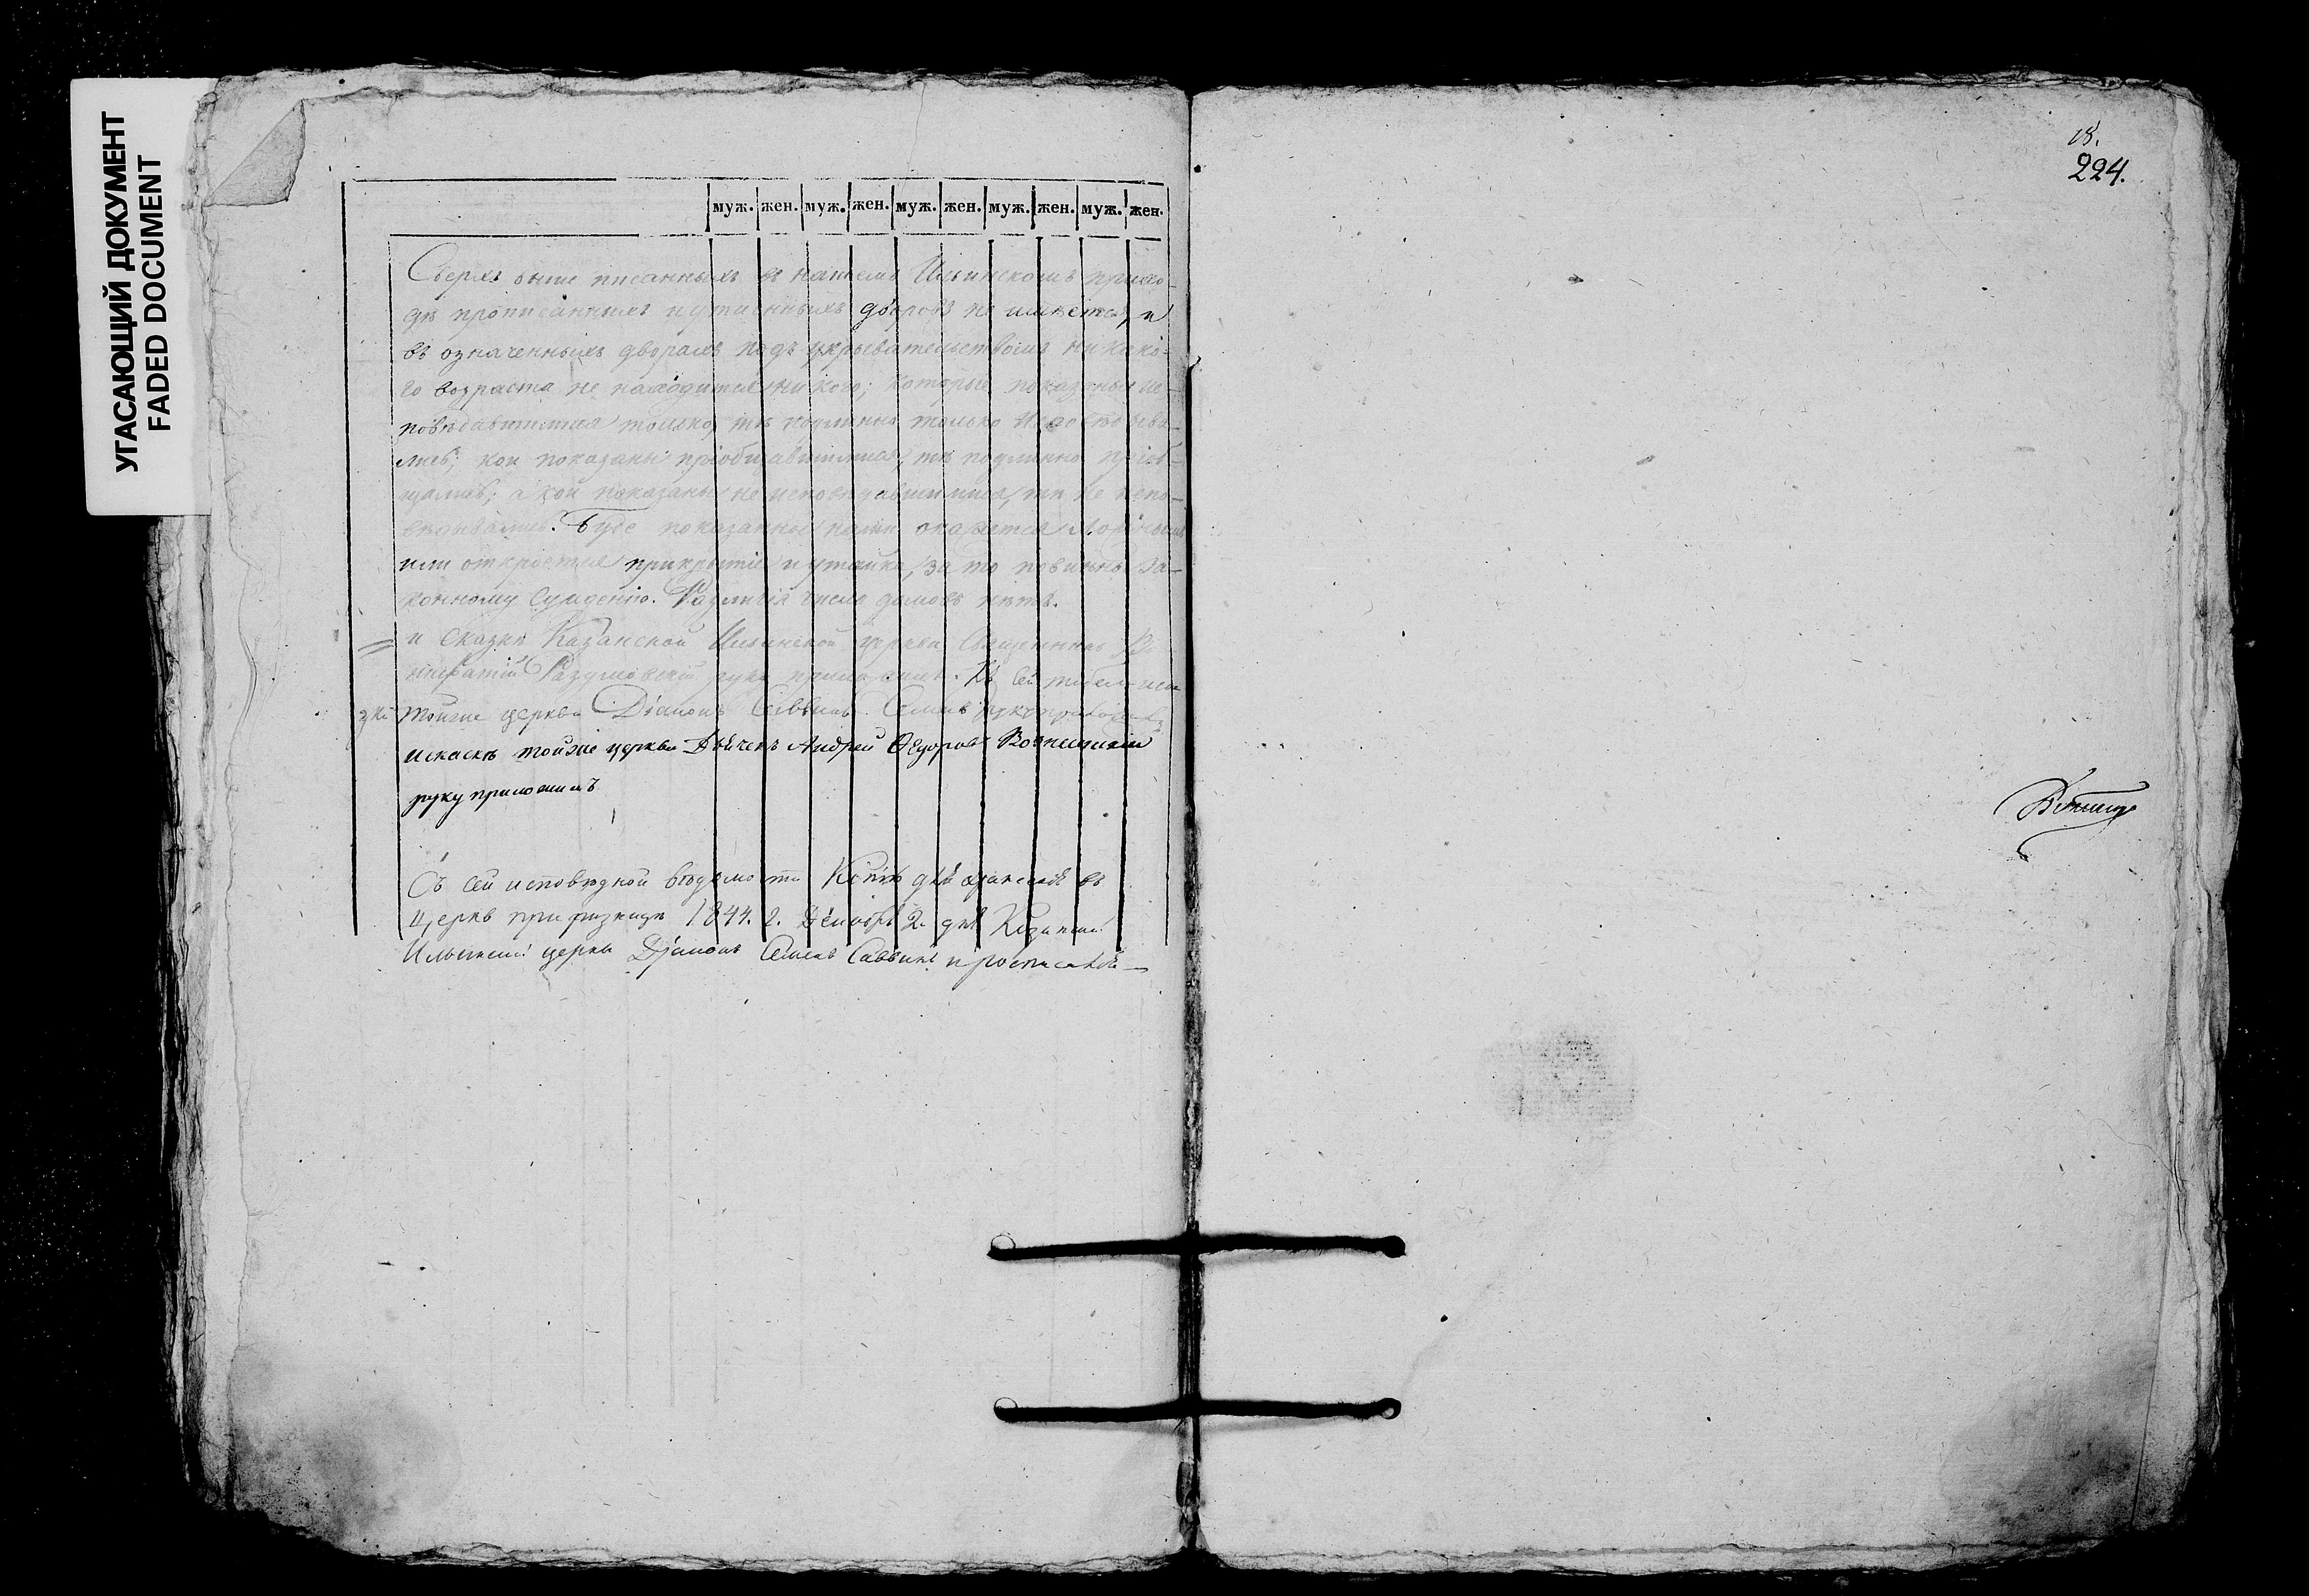 УГАСАЮЩИЙ ДОКУМЕНТ
FADED DOCUMENT
муж. жен. муж. жен. муж. жен. муж. жен. муж. жен.
Сверхъ выше писанныхъ въ нашемъ Ильинскомъ прихо-
дѣ прописанныхъ и утаенныхъ дворовъ не имѣется, и
въ означенныхъ дворахъ подъ укрывательствомъ никако-
го возраста не находится никого; которые показаны ис-
повѣдавшимися только, тѣ подлинно только исповѣдыва-
лись; кои показаны пріобщавшимися, тѣ подлинно пріоб-
щались; а кои показаны не исповѣдавшимися, тѣ не испо-
вѣдывались. Буде показанное нами окажется ложнымъ
или откроется прикрытіе и утайка, за то повинны за-
конному сужденію. Различія числа домовъ нѣтъ.
и сказкѣ Казанской Ильинской церкви Священникъ
Разумовскій руку приложилъ. Къ сей
тойже церкви Діаконъ Саввинъ Семенъ руку приложилъ
искаскѣ тойже церкви Дьячекъ Андрей Ѳедоровъ
руку приложилъ
Съ сей исповѣдной вѣдомости Копію для храненія въ
Церкв при ризницѣ 1844. г. 2. дня Казанской
Ильинской церкви Діаконъ Семенъ Саввинъ
18.
224.